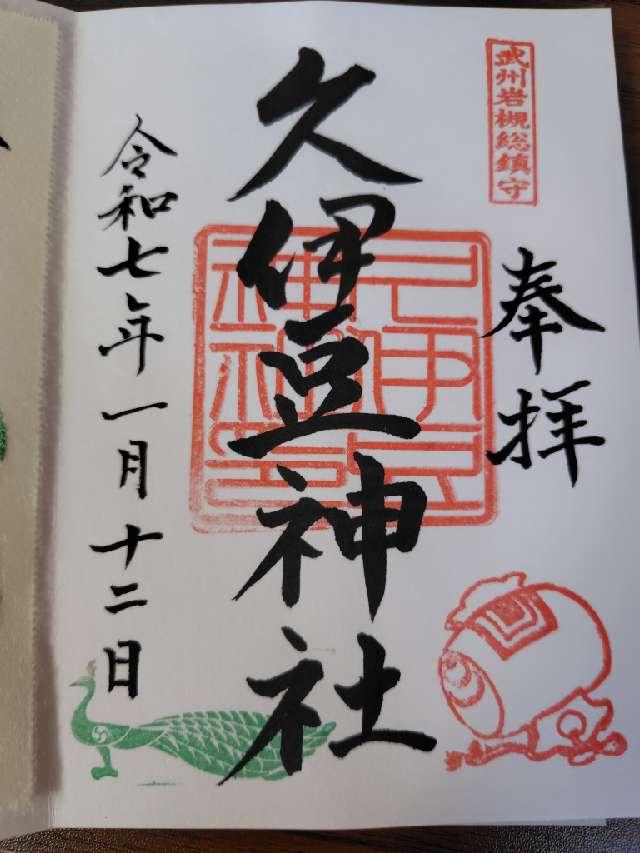 武州岩槻総鎮守
奉拝
久伊豆神社
令和七年一月十二日